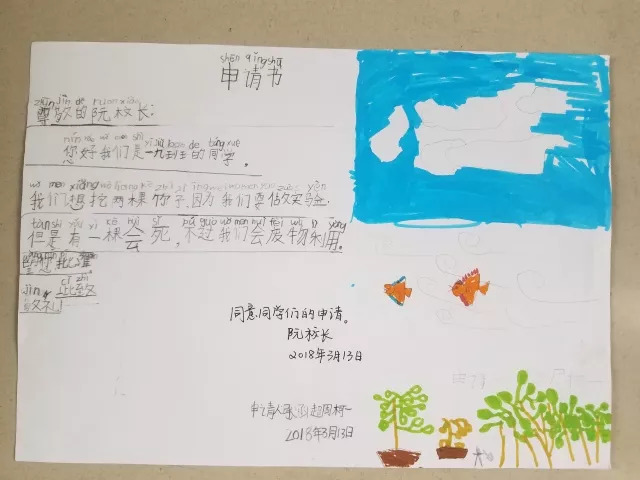 shēn qǐng shū
申请书
zūn jìng de ruan xiào
尊敬的阮校长:
nín hǎo wǒ men shì yī jiǔ ban de tóng xué
您好我们是一九到主的同学。
wǒ men xiǎng wā liǎng kē zhú zi yīn wèi wǒ men yào zuò shí yàn
我们想挖两棵竹子,因为我们要做实验.
dàn shì yǒu yì kē huì sǐ bú guò wǒ men huì fèi wù lì yòng
但是有一棵会死,不过我们会废物利用。
望您批准
cǐ zhì
此致
jìng lǐ
敬礼!
同意同学们的申请。
阮校长
2018年3月13日
申请人 张 赵周柯一
2018年3月13日